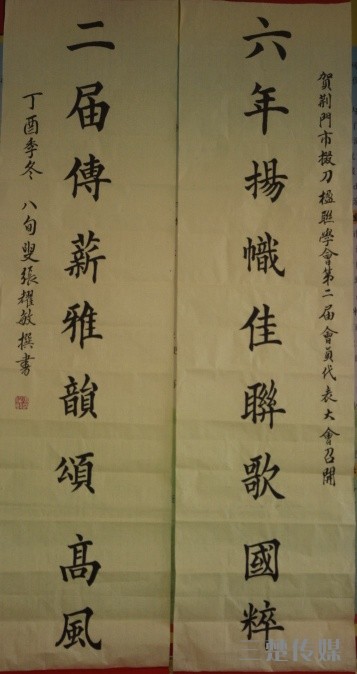 賀荆門市掇刀楹聯學會第二届會員代表大會召開
六年揚幟佳聯歌國粹
二届傳薪雅韻頌高風
丁酉季冬 八旬叟張耀敏撰書
三楚传媒